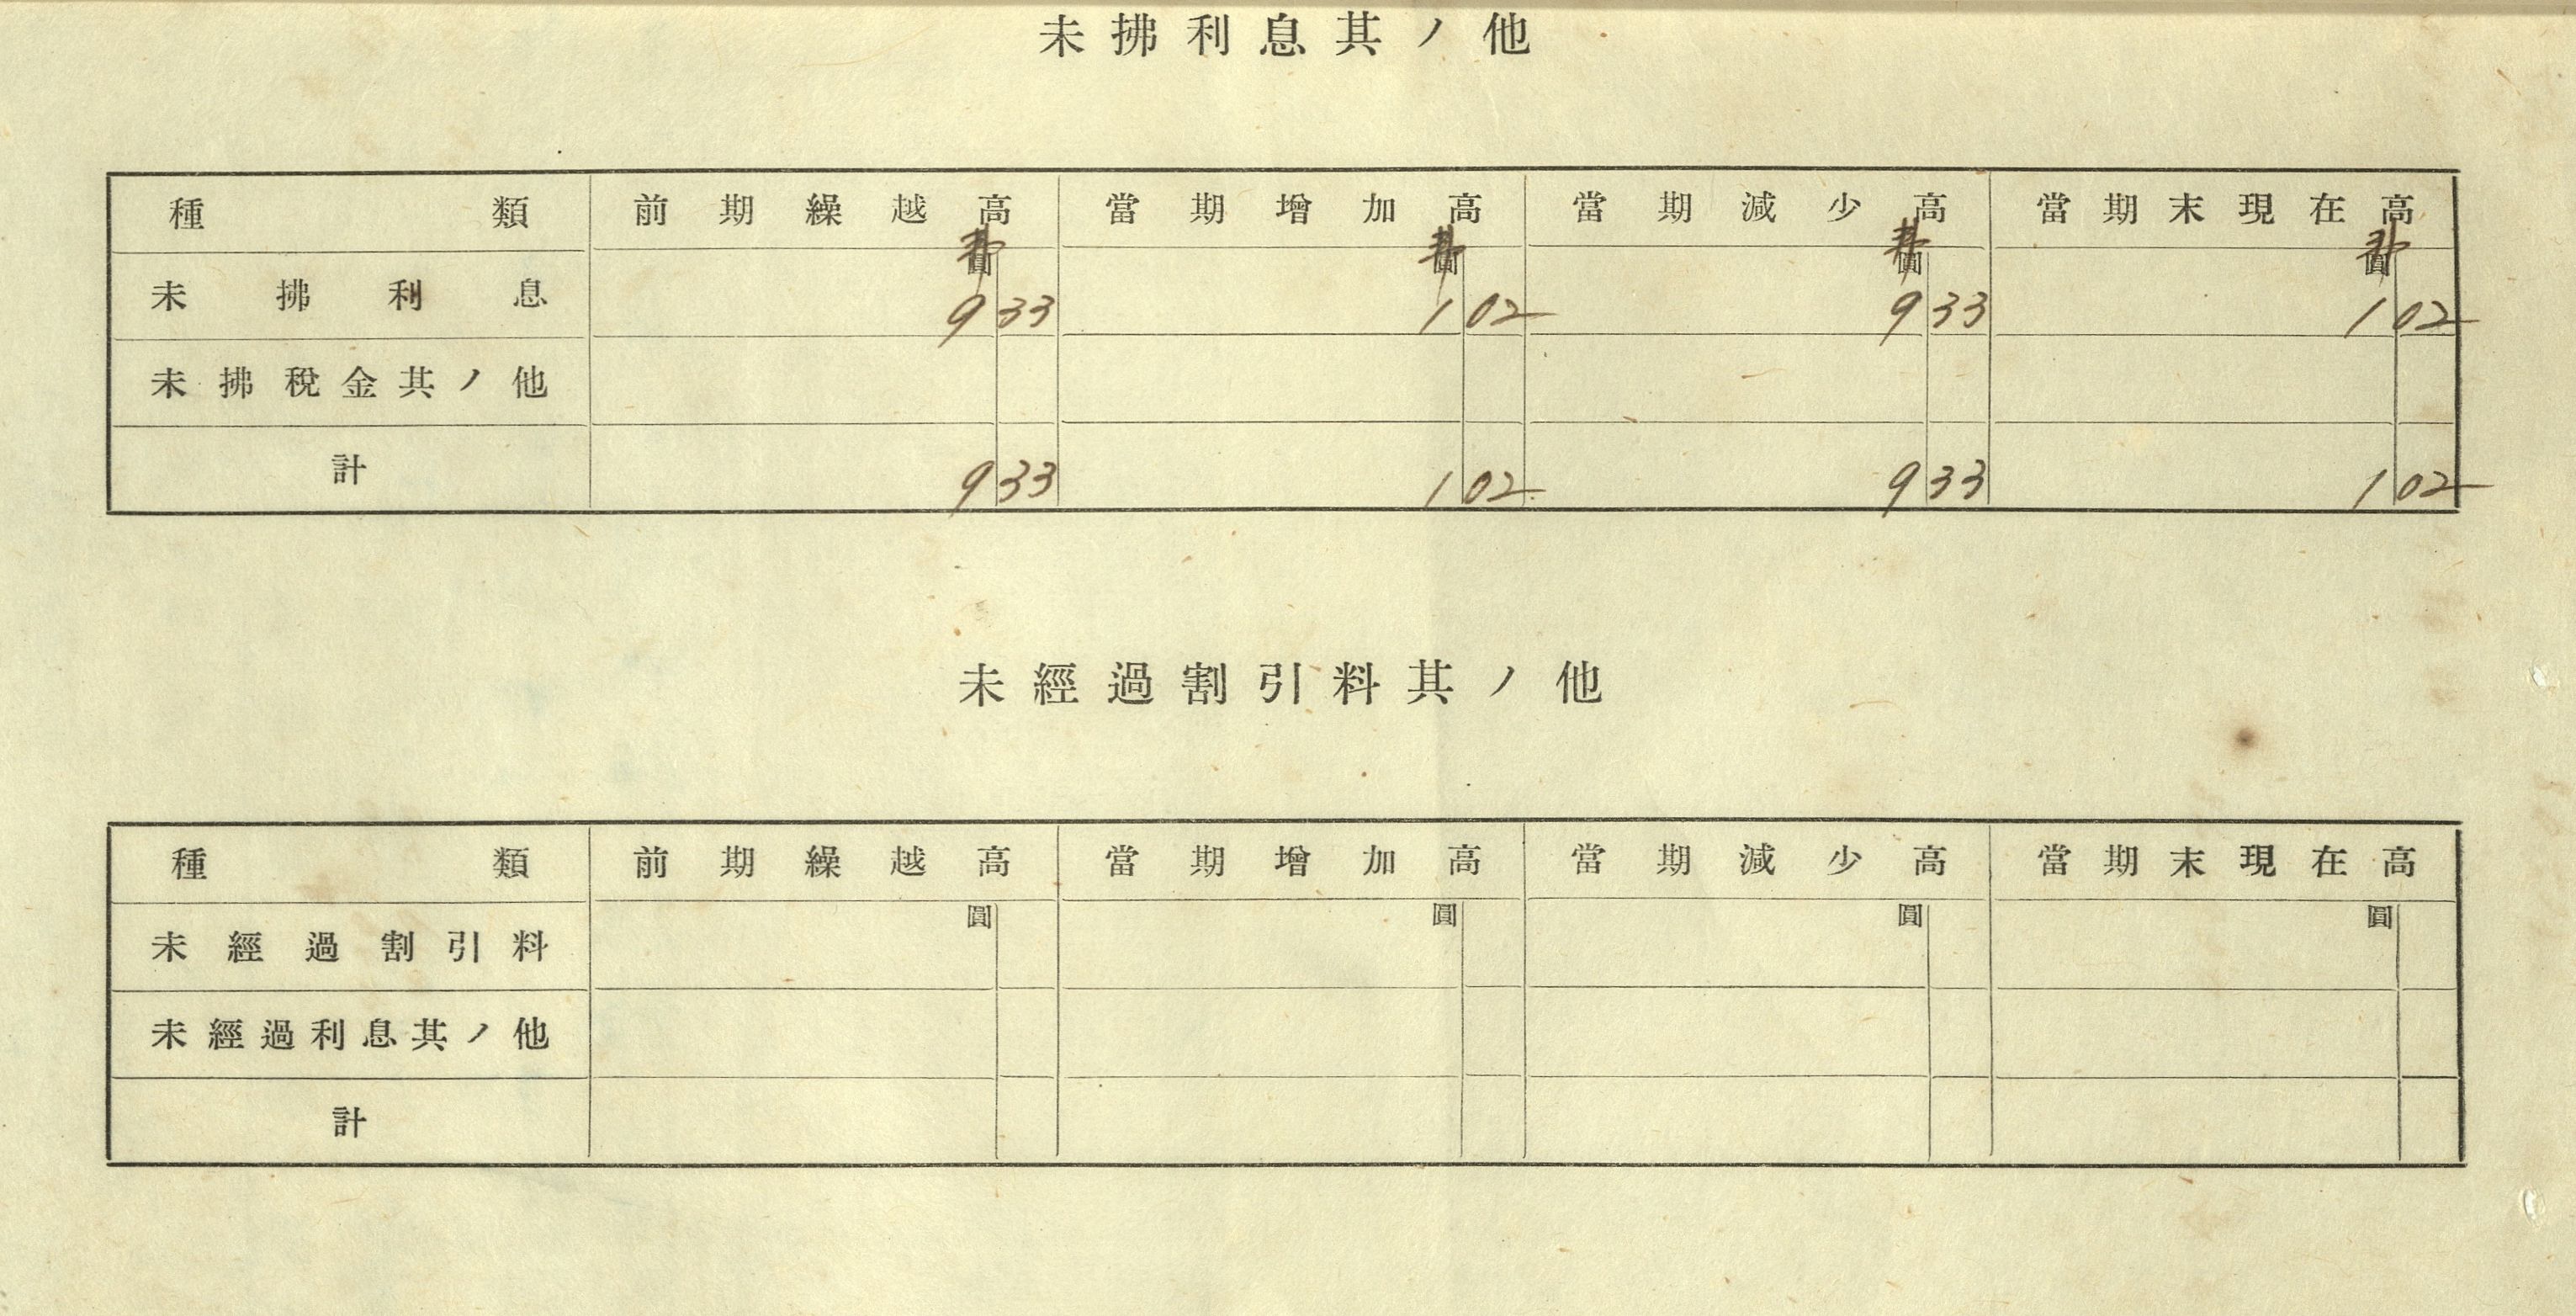 未拂利息其ノ他
種類 前期繰越高 當期增加高 當期減少高 當期末現在高
圓 圓 圓 圓
未拂利息 9 33 1 02 9 33 1 02
未拂稅金其ノ他
計 9 33 1 02 9 33 1 02
未經過割引料其ノ他
種類 前期繰越高 當期增加高 當期減少高 當期末現在高
圓 圓 圓 圓
未經過割引料
未經過利息其ノ他
計